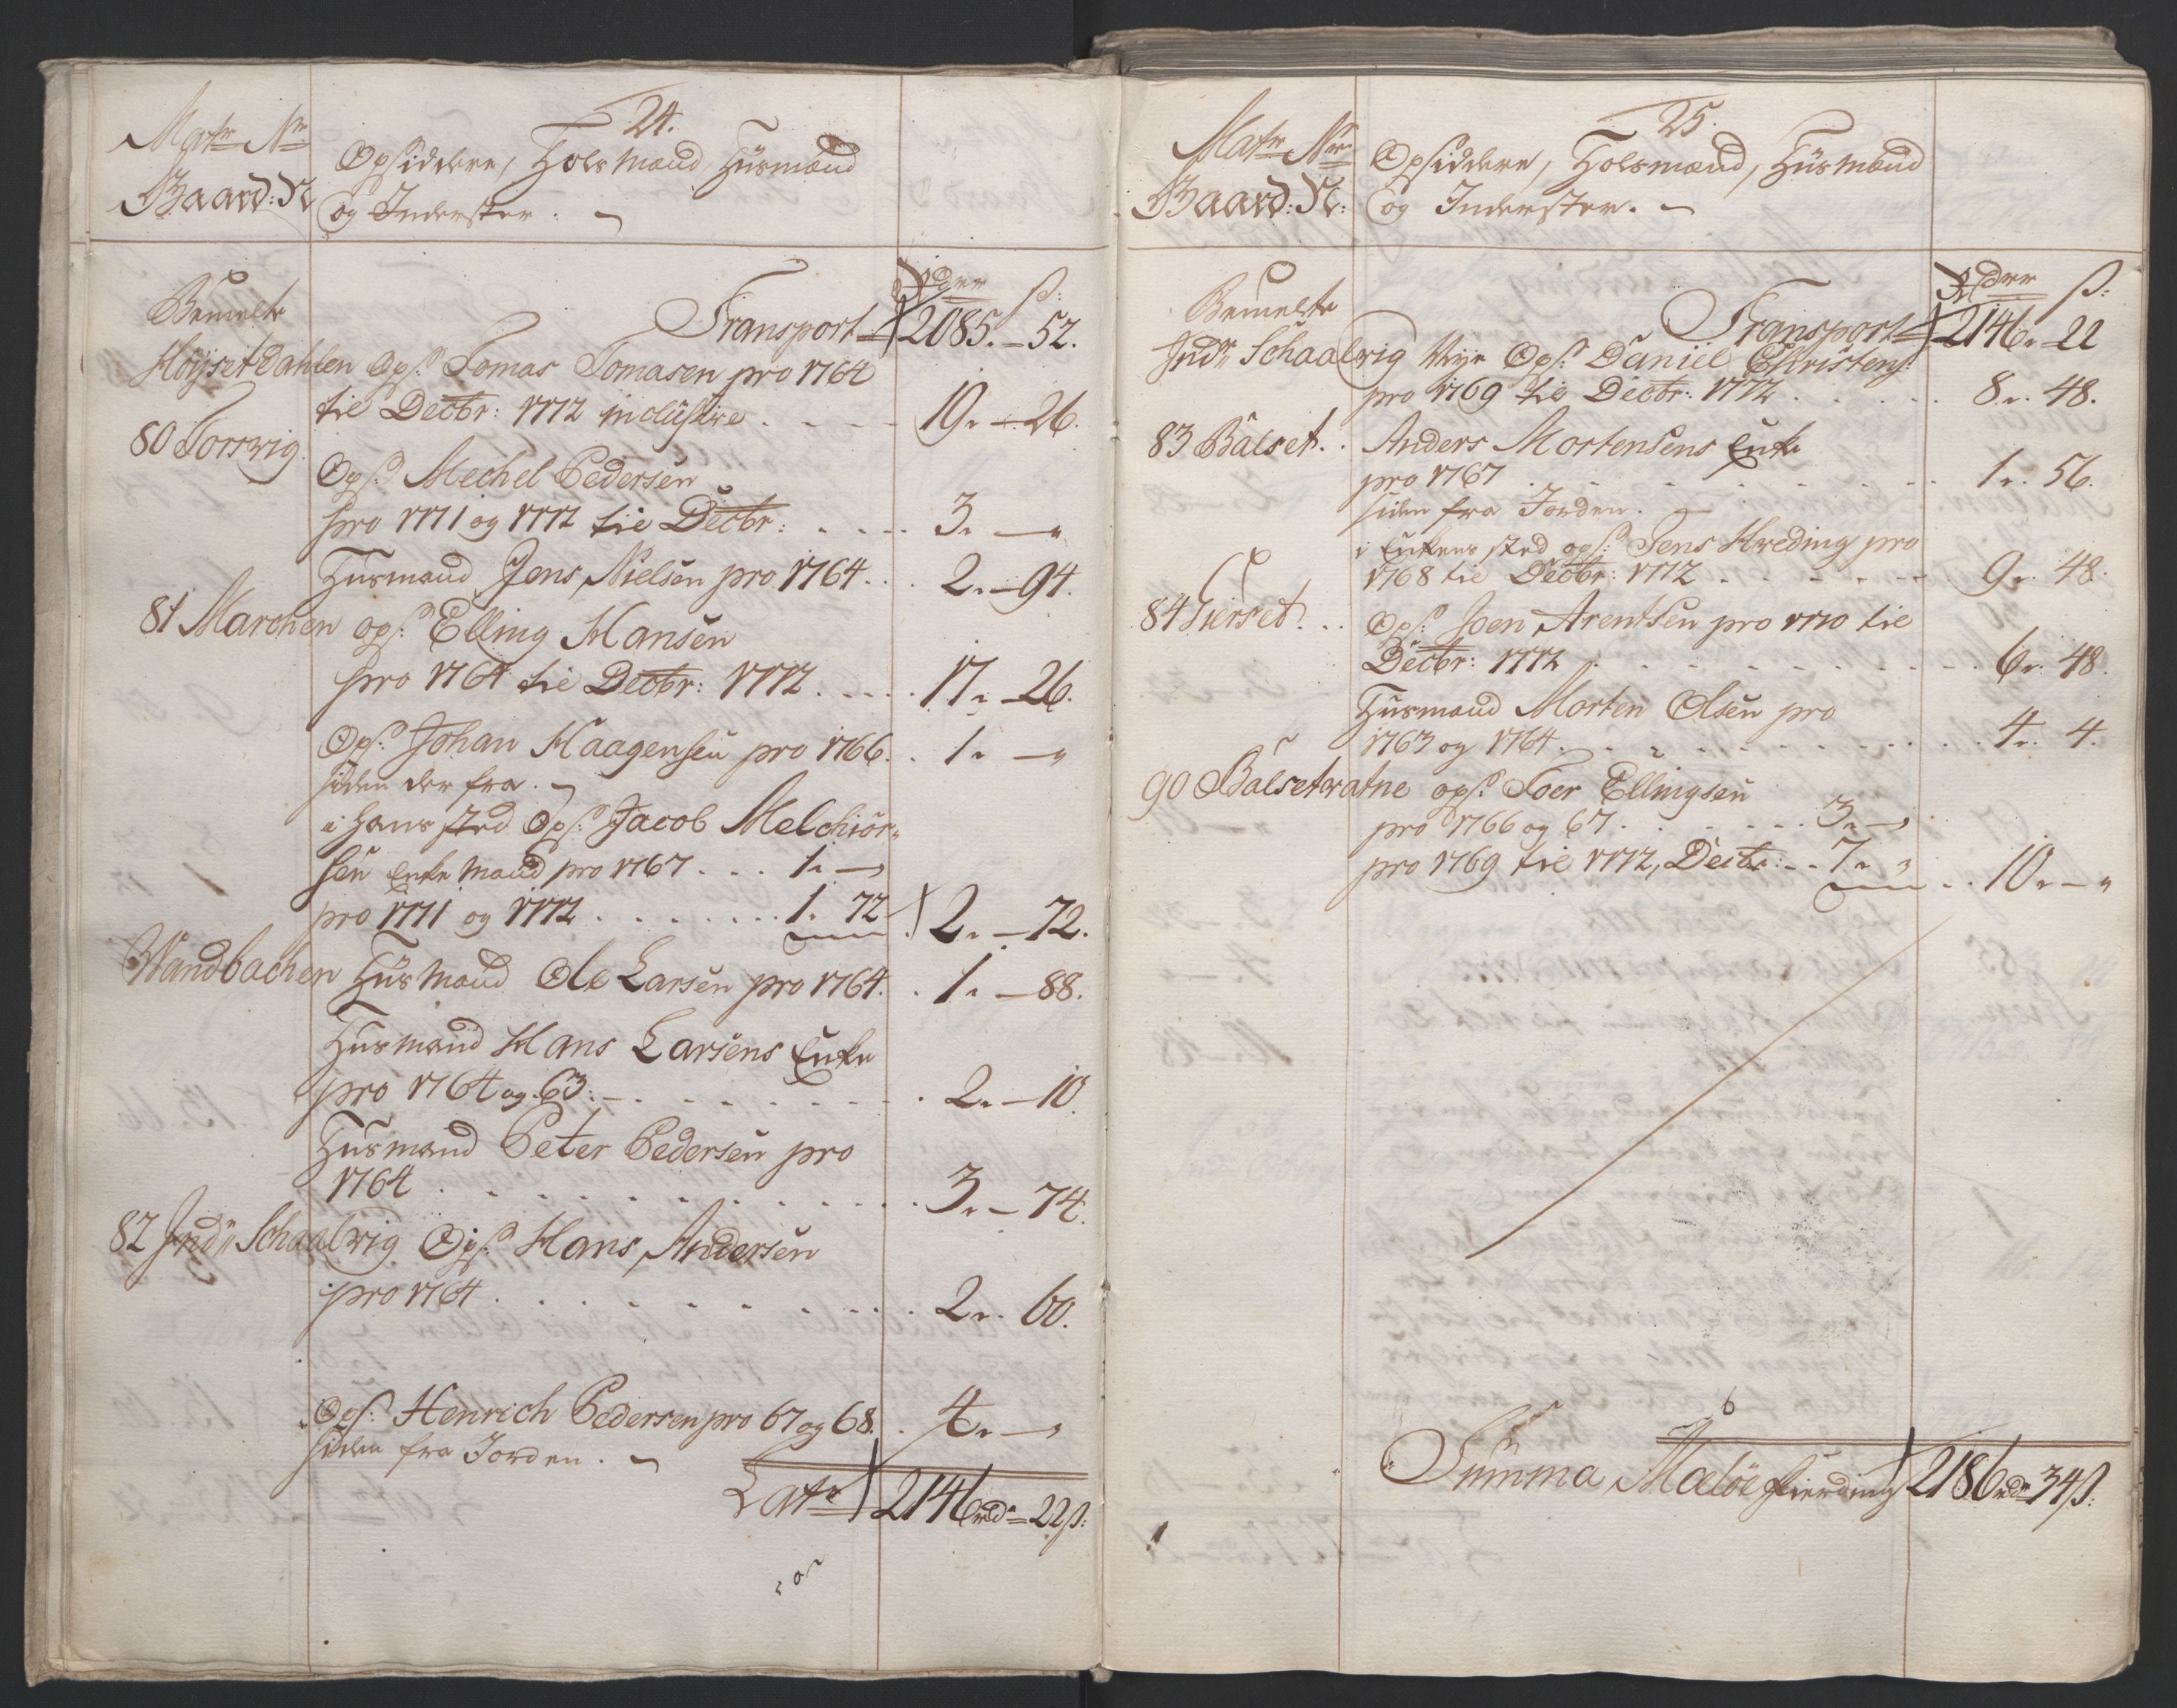 24.
Matr Nr
Opsiddere, Holsmænd Hüsmænd
Gaard: N
og Inderster.
Rdlr ß:
Bemelte
Transport 2085. - 52.
Höysetdahlen Ops: Tomas Tomasen pro 1764
til Decbr: 1772 inclusive . . . . 19. - 26.
80 Torsvig.
Ops: Mechel Pedersen
pro 1771 og 1772 til Decbr: . . . . 3. -
Husmand Jens Nielsen pro 1764 . . 2. - 94.
81 Marchen ops: Elling Hansen
pro 1764 til Decbr: 1772 . . . . 17. - 26.
Ops: Johan Haagensen pro 1766. . 1. -
siden der fra.
i hans sted Ops: Jacob Melchior-
sen Enke Mand pro 1767 . . . 1. -
pro 1771 og 1772 . . . . . . . 1. 72 2. - 72.
Wandbachen Hüsmand Ole Larsen pro 1764. . 1. - 88.
Husmand Hans Larsens Enke
pro 1764 og 63: . . . . . . . . 2. - 10.
Husmand Peter Pedersen pro
1764 . . . . . . . . . . 3. - 74.
82 Indr Schaalvig Ops: Hans Andersen
pro 1764 . . . . . . . . . . 2. 60.
Ops: Henrich Pedersen pro 67 og 68. . 4. -
siden fra Jorden.
Latr 2146 rd - 22 ß:
25.
Matr Nr
Opsiddere, Holsmænd, Hüsmænd
Gaard: N:
og Inderster.
Rdlr ß:
Bemelte
Transport 2146. - 22
Indr Schaalvig Nye Ops: Daniel Christens:
pro 1769 til Decbr: 1772 . . . . 8. 48.
83 Bälset. . Anders Mortensens Enke
pro 1767 . . . . . . . . . . 1. 56.
siden fra Jorden.
i Enkens sted ops: Jens Hveding pro
1768 til Decbr: 1772 . . . . . . 9. 48.
84 Fierset. . . Ops: Joen Arentsen pro 1770 til
Decbr: 1772 . . . . . . . . . . 6. 48.
Husmand Morten Olsen pro
1763 og 1764 . . . . . . . . . . 4. 4.
90 Bälsetvatne ops: Toer Ellingsen
pro 1766 og 67 . . . . . . 3. -
pro 1769 til 1772, Decbr: . . 7. . . 10. -
Summa Maløe fierding 2186 rd 34 ß: